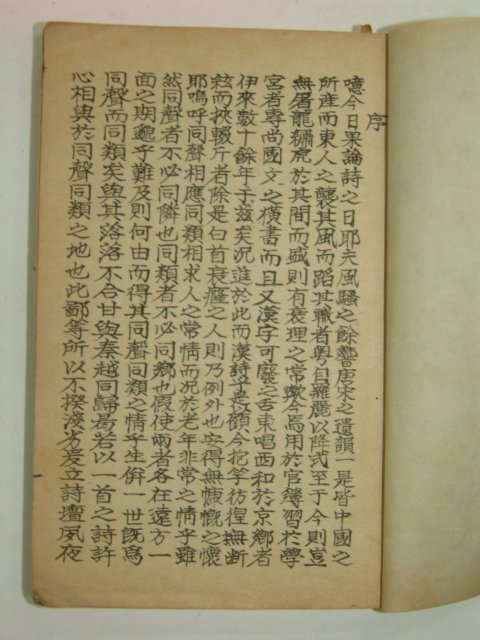 序
噫今日果論詩之日耶夫風騷之餘響唐宋之遺韻一是皆中國之
所産而東人之襲其風而蹈其職者粤自羅麗以降式至于今則豈
無屠龍獼虎於其間而盛則有衰理之常歟今焉用於官簿習於學
宮者專尚國文之橫書而且又漢字可廢之舌東唱西和於京鄉者
伊來數十餘年于玆矣況進於此而漢詩乎喪顧今抱竽彷徨撫斷
絃而挾轅斤者除是白首衰癃之人則乃例外也安得無慷慨之懷
耶嗚呼同聲相應同類相求人之常情而況於老年非常之情乎雖
然同聲者不必同隣也同類者不必同鄉也假使兩者各在遠方一
面之期邈乎難及則何由而得其同聲同類之情乎生倂一世旣爲
同聲而同類矣與其落落不合甘與秦越同歸曷若以一首之詩許
心相與於同聲同類之地也此鄙等所以不揆淺劣爰立詩壇夙夜